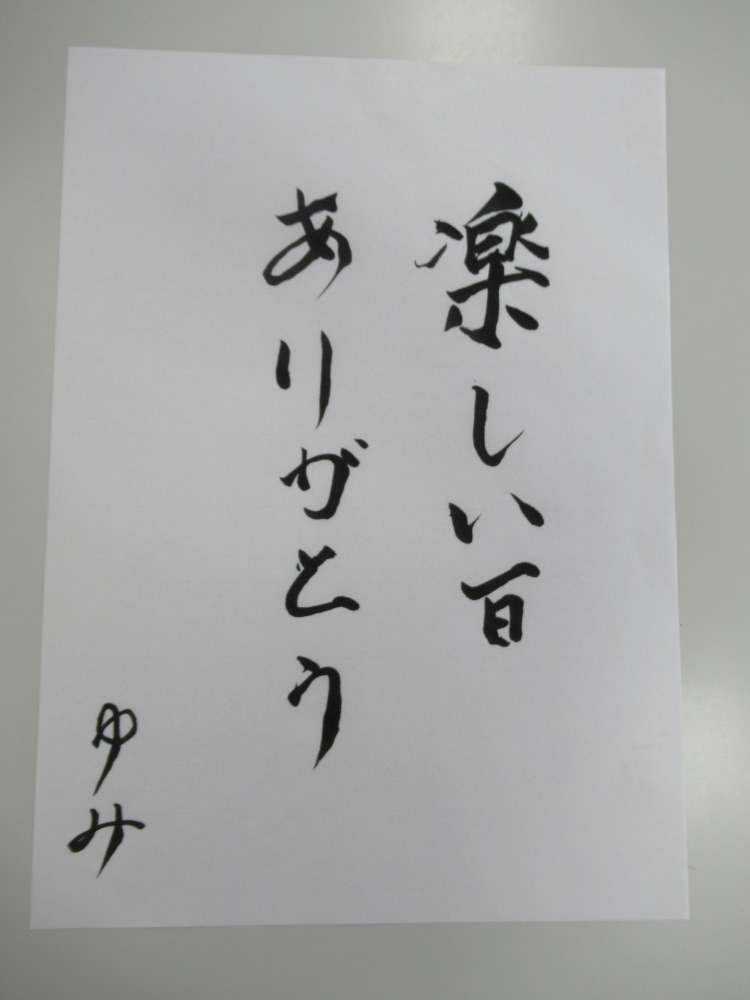 楽しい百
ありがとう
ゆみ